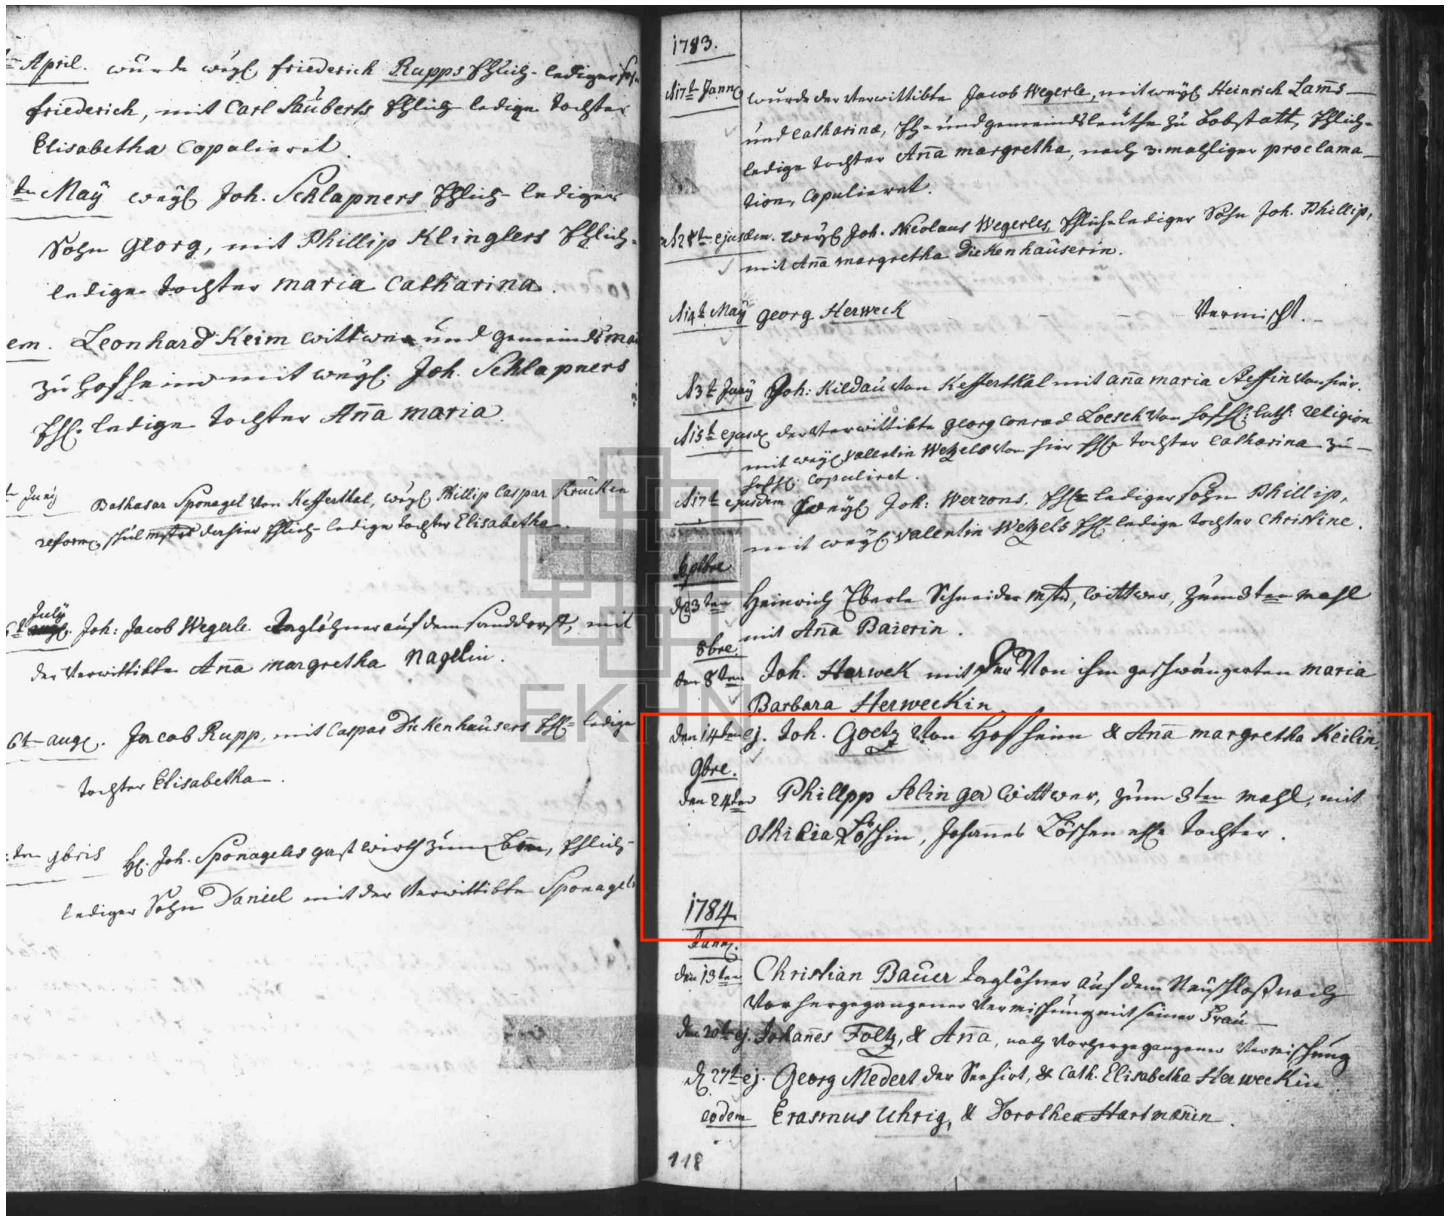 April. wurde weyl. friederich Rupps Ehlich-lediger
friederich, mit Carl Säuberts Ehlich ledige tochter
Elisabetha Copulieret.
May weyl. Joh. Schlapners Ehlich-lediger
Sohn Georg, mit Phillip Klinglers Ehlich-
ledige tochter maria Catharina.
em. Leonhard Keim wittwer und gemeinds
zu Hofheim mit weyl. Joh. Schlapners
Ehl. ledige tochter Ana maria.
Juny Balthasar Sponagel von Kefferthal, weyl. Phillip Caspar Krücken
reform. dahier Ehlich ledige tochter Elisabetha.
July
Joh: Jacob Wegerle taglöhner auf dem Sanddorf, mit
der verwittibte Ana margretha Nagelin.
6t aug. Jacob Rupp, mit Caspar Dickenhäusers Ehl-ledige
tochter Elisabetha.
9bris H. Joh. Sponagels gastwirth zum Ehlich-
lediger Sohn Daniel mit der verwittibte Sponagel
1783.
d 17t Jann. wurde der verwittibte Jacob Wegerle, mit weyl. Heinrich Lams
und Catharina, Ehe- und gemeindsleuthe zu Bobstatt, Ehlich-
ledige tochter Ana margretha, nach 3.mahliger proclama-
tion, Copulieret.
d 28t ejusdem. weyl. Joh. Nicolaus Wegerles, Ehlich lediger Sohn Joh. Phillip,
mit Ana margretha Dickenhäuserin.
d 14t May Georg Herweck Vermischt.
d 3t Juny Joh: Kildau von Kefferthal mit ana maria Steffin von hier.
d 15t ejusd. der verwittibte georg conrad Loesch von Hofh: luth: religion
mit weyl. Valentin Wetzels von hier Ehl. tochter Catharina zu
Hofh. copuliret.
d 17t ejusdem weyl. Joh: Werrons, Ehl. lediger Sohn Phillip,
mit weyl. Valentin Wetzels Ehl. ledige tochter Christine.
Septbre
d 23ten Heinrich Eberle Schneider mstr, wittwer, zum 3ten mahl
mit Ana Baierin.
8bre.
den 8ten Joh. Herwek mit der von ihm geschwängerten maria
Barbara Herweckin
den 14ten ej. Joh. Goetz von Hofheim & Ana margretha Keilin,
9bre.
den 24ten Phillpp Alinger Wittwer, zum 3ten mahl, mit
Othilia Löschin, Johannes Löschen ehl. tochter.
1784.
Jann.
den 13ten Christian Bauer taglöhner auf dem Neuschloß nach
Vorhergegangener Vermischung mit seiner Frau
den 20t ej. Johanes Foltz, & Ana, nach vorhergegangener Vermischung
d 27t ej. Georg Medert der Seehirt, & Cath. Elisabetha Herweckin.
eodem Erasmus Uhrig, & Dorothea Hartmänin.
118
EKHN